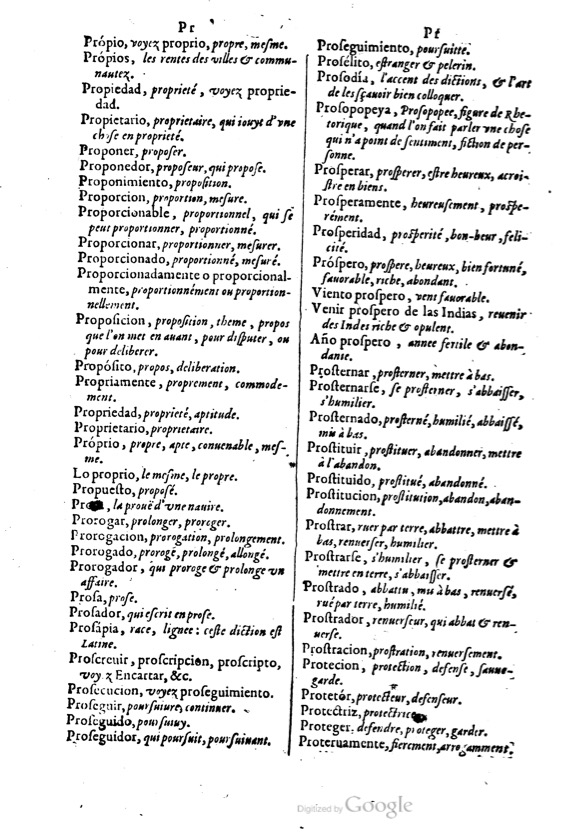 Pr
Própio, voyez proprio, propre, mesme.
Própios, les rentes des villes & commu-
nautez.
Propiedad, proprieté, voyez proprie-
dad.
Propietario, proprietaire, qui iouyt d'vne
chose en proprieté.
Proponer, proposer.
Proponedor, proposeur, qui propose.
Proponimiento, proposition.
Proporcion, proportion, mesure.
Proporcionable, proportionnel, qui se
peut proportionner, proportionné.
Proporcionar, proportionner, mesurer.
Proporcionado, proportionné, mesuré.
Proporcionadamente o proporcional-
mente, proportionnément ou proportion-
nellement.
Proposicion, proposition, theme, propos
que l'on met en auant, pour disputer, ou
pour deliberer.
Propósito, propos, deliberation.
Propriamente, proprement, commode-
ment.
Propriedad, proprieté, aptitude.
Proprietario, proprietaire.
Próprio, propre, apte, conuenable, mes-
me.
Lo proprio, le mesme, le propre.
Propuesto, proposé.
Pro, la prouë d'vne nauire.
Prorogar, prolonger, proroger.
Prorogacion, prorogation, prolongement.
Prorogado, prorogé, prolongé, allongé.
Prorogador, qui proroge & prolonge vn
affaire.
Prosa, prose.
Prosador, qui escrit en prose.
Prosápia, race, lignee: ceste diction est
Latine.
Proscreuir, proscripcion, proscripto,
voyez Encartar, &c.
Prosecucion, voyez proseguimiento.
Proseguir, poursuiure, continuer.
Proseguido, poursuiuy.
Proseguidor, qui poursuit, poursuiuant.
Ps
Proseguimiento, poursuitte.
Prosélito, estranger & pelerin.
Prosodía, l'accent des dictions, & l'art
de les sçauoir bien colloquer.
Prosopopeya, Prosopopee, figure de Rhe-
torique, quand l'on fait parler vne chose
qui n'a point de sentiment, fiction de per-
sonne.
Prosperar, prosperer, estre heureux, acroi-
stre en biens.
Prosperamente, heureusement, prospe-
rément.
Prosperidad, prosperité, bon-heur, feli-
cité.
Próspero, prospere, heureux, bien fortuné,
fauorable, riche, abondant.
Viento prospero, vent fauorable.
Venir prospero de las Indias, reuenir
des Indes riche & opulent.
Año prospero, annee fertile & abon-
dante.
Prosternar, prosterner, mettre à bas.
Prosternarse, se prosterner, s'abbaisser,
s'humilier.
Prosternado, prosterné, humilié, abbaissé,
mis à bas.
Prostituir, prostituer, abandonner, mettre
à l'abandon.
Prostituido, prostitué, abandonné.
Prostitucion, prostitution, abandon, aban-
donnement.
Prostrar, ruer par terre, abbattre, mettre à
bas, renuerser, humilier.
Prostrarse, s'humilier, se prosterner &
mettre en terre, s'abbaisser.
Prostrado, abbattu, mis à bas, renuersé,
rué par terre, humilié.
Prostrador, renuerseur, qui abbat & ren-
uerse.
Prostracion, prostration, renuersement.
Protecion, protection, defense, sauue-
garde.
Protetór, protecteur, defenseur.
Protectriz, protectrice
Proteger, defendre, proteger, garder.
Proteruamente, fierement, arrogamment.
Digitized by Google